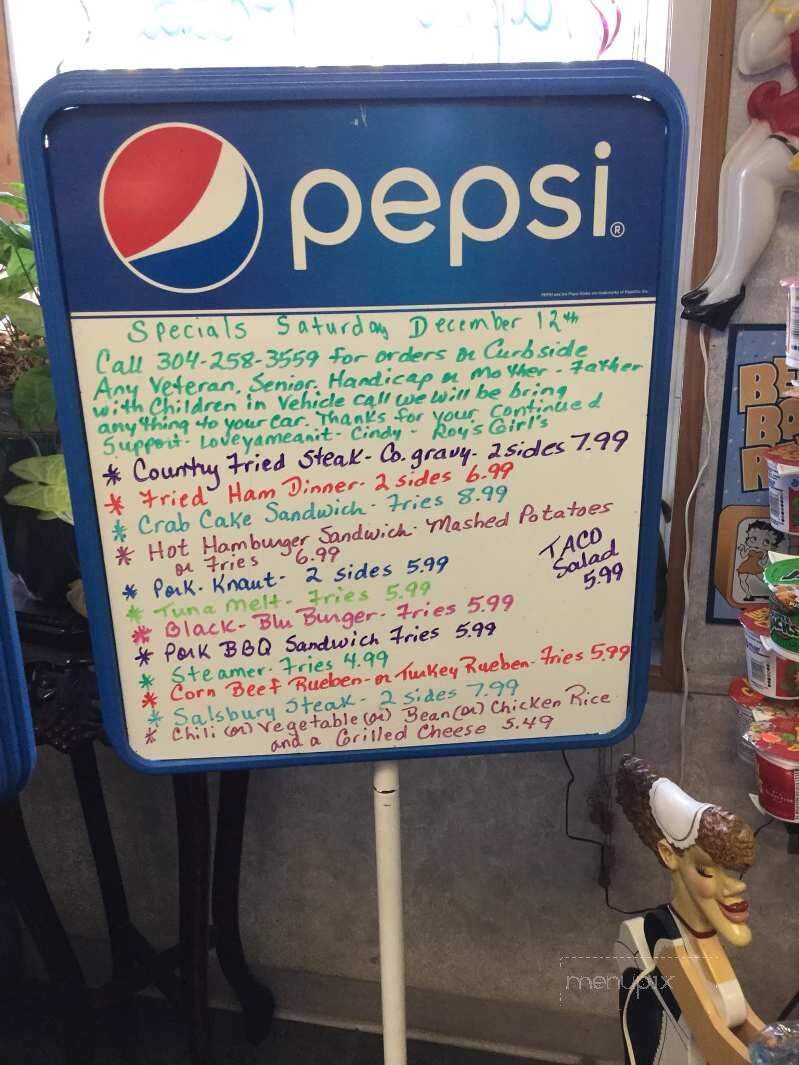 pepsi®
Specials Saturday December 12th
Call 304-258-3559 for orders or Curbside
Any Veteran, Senior, Handicap or Mother - Father
with Children in Vehicle call we will be bring
anything to your car. Thanks for your continued
Support - Loveyameanit - Cindy - Roy's Girl's
* Country Fried Steak - Co. gravy - 2 sides 7.99
* Fried Ham Dinner - 2 sides 6.99
* Crab Cake Sandwich - Fries 8.99
* Hot Hamburger Sandwich - Mashed Potatoes
or Fries 6.99
* Pork - Knaut - 2 sides 5.99
TACO
Salad
5.99
* Tuna Melt - Fries 5.99
* Black - Blu Burger - Fries 5.99
* Pork BBQ Sandwich Fries 5.99
* Steamer - Fries 4.99
* Corn Beef Rueben - or Turkey Rueben - Fries 5.99
* Salsbury Steak - 2 sides 7.99
* Chili (or) Vegetable (or) Bean (or) Chicken Rice
and a Grilled Cheese 5.49
menupix